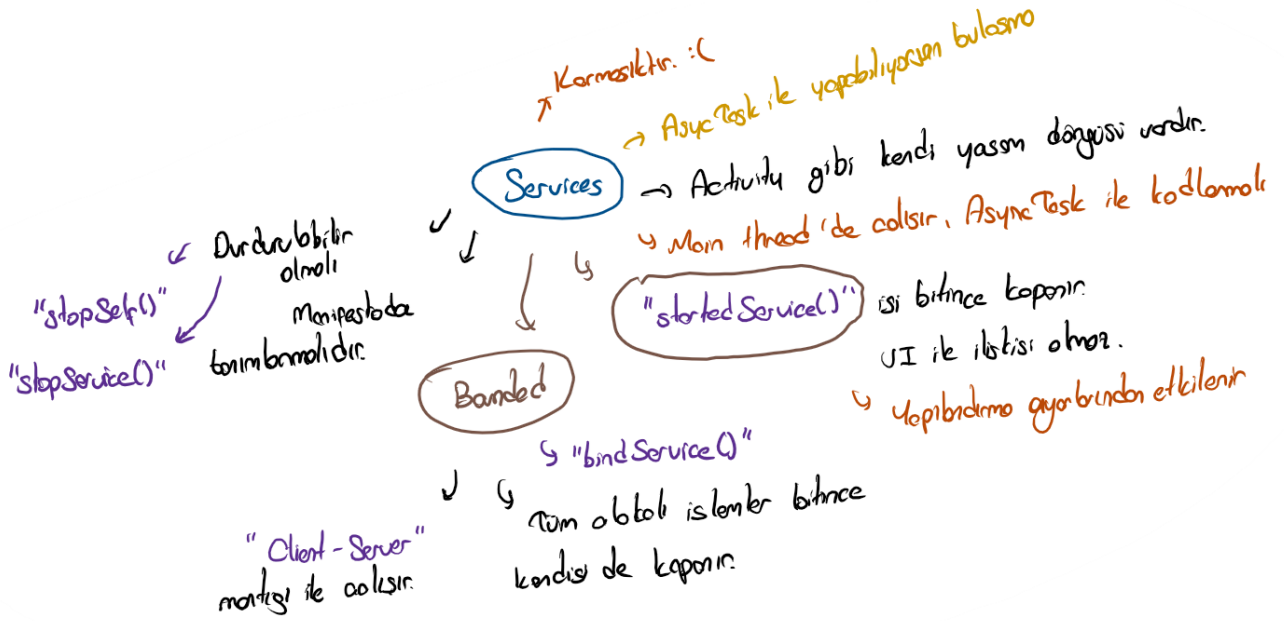 Karmaşıktır. :(
→ AsycTask ile yapabiliyorsan bulaşma
Services
→ Activity gibi kendi yaşam döngüsü vardır.
Main thread'de çalışır, AsyncTask ile kodlamalı
Durdurulabilir
olmalı
"stopSelf()"
"stopService()"
Manifestoda
tanımlanmalıdır.
"startedService()"
işi bitince kapanır.
UI ile ilişkisi olmaz.
Yapılandırma ayarlarından etkilenir
Banded
"bindService()"
Tüm alakalı işlemler bitince
kendisi de kapanır.
"Client-Server"
mantığı ile çalışır.